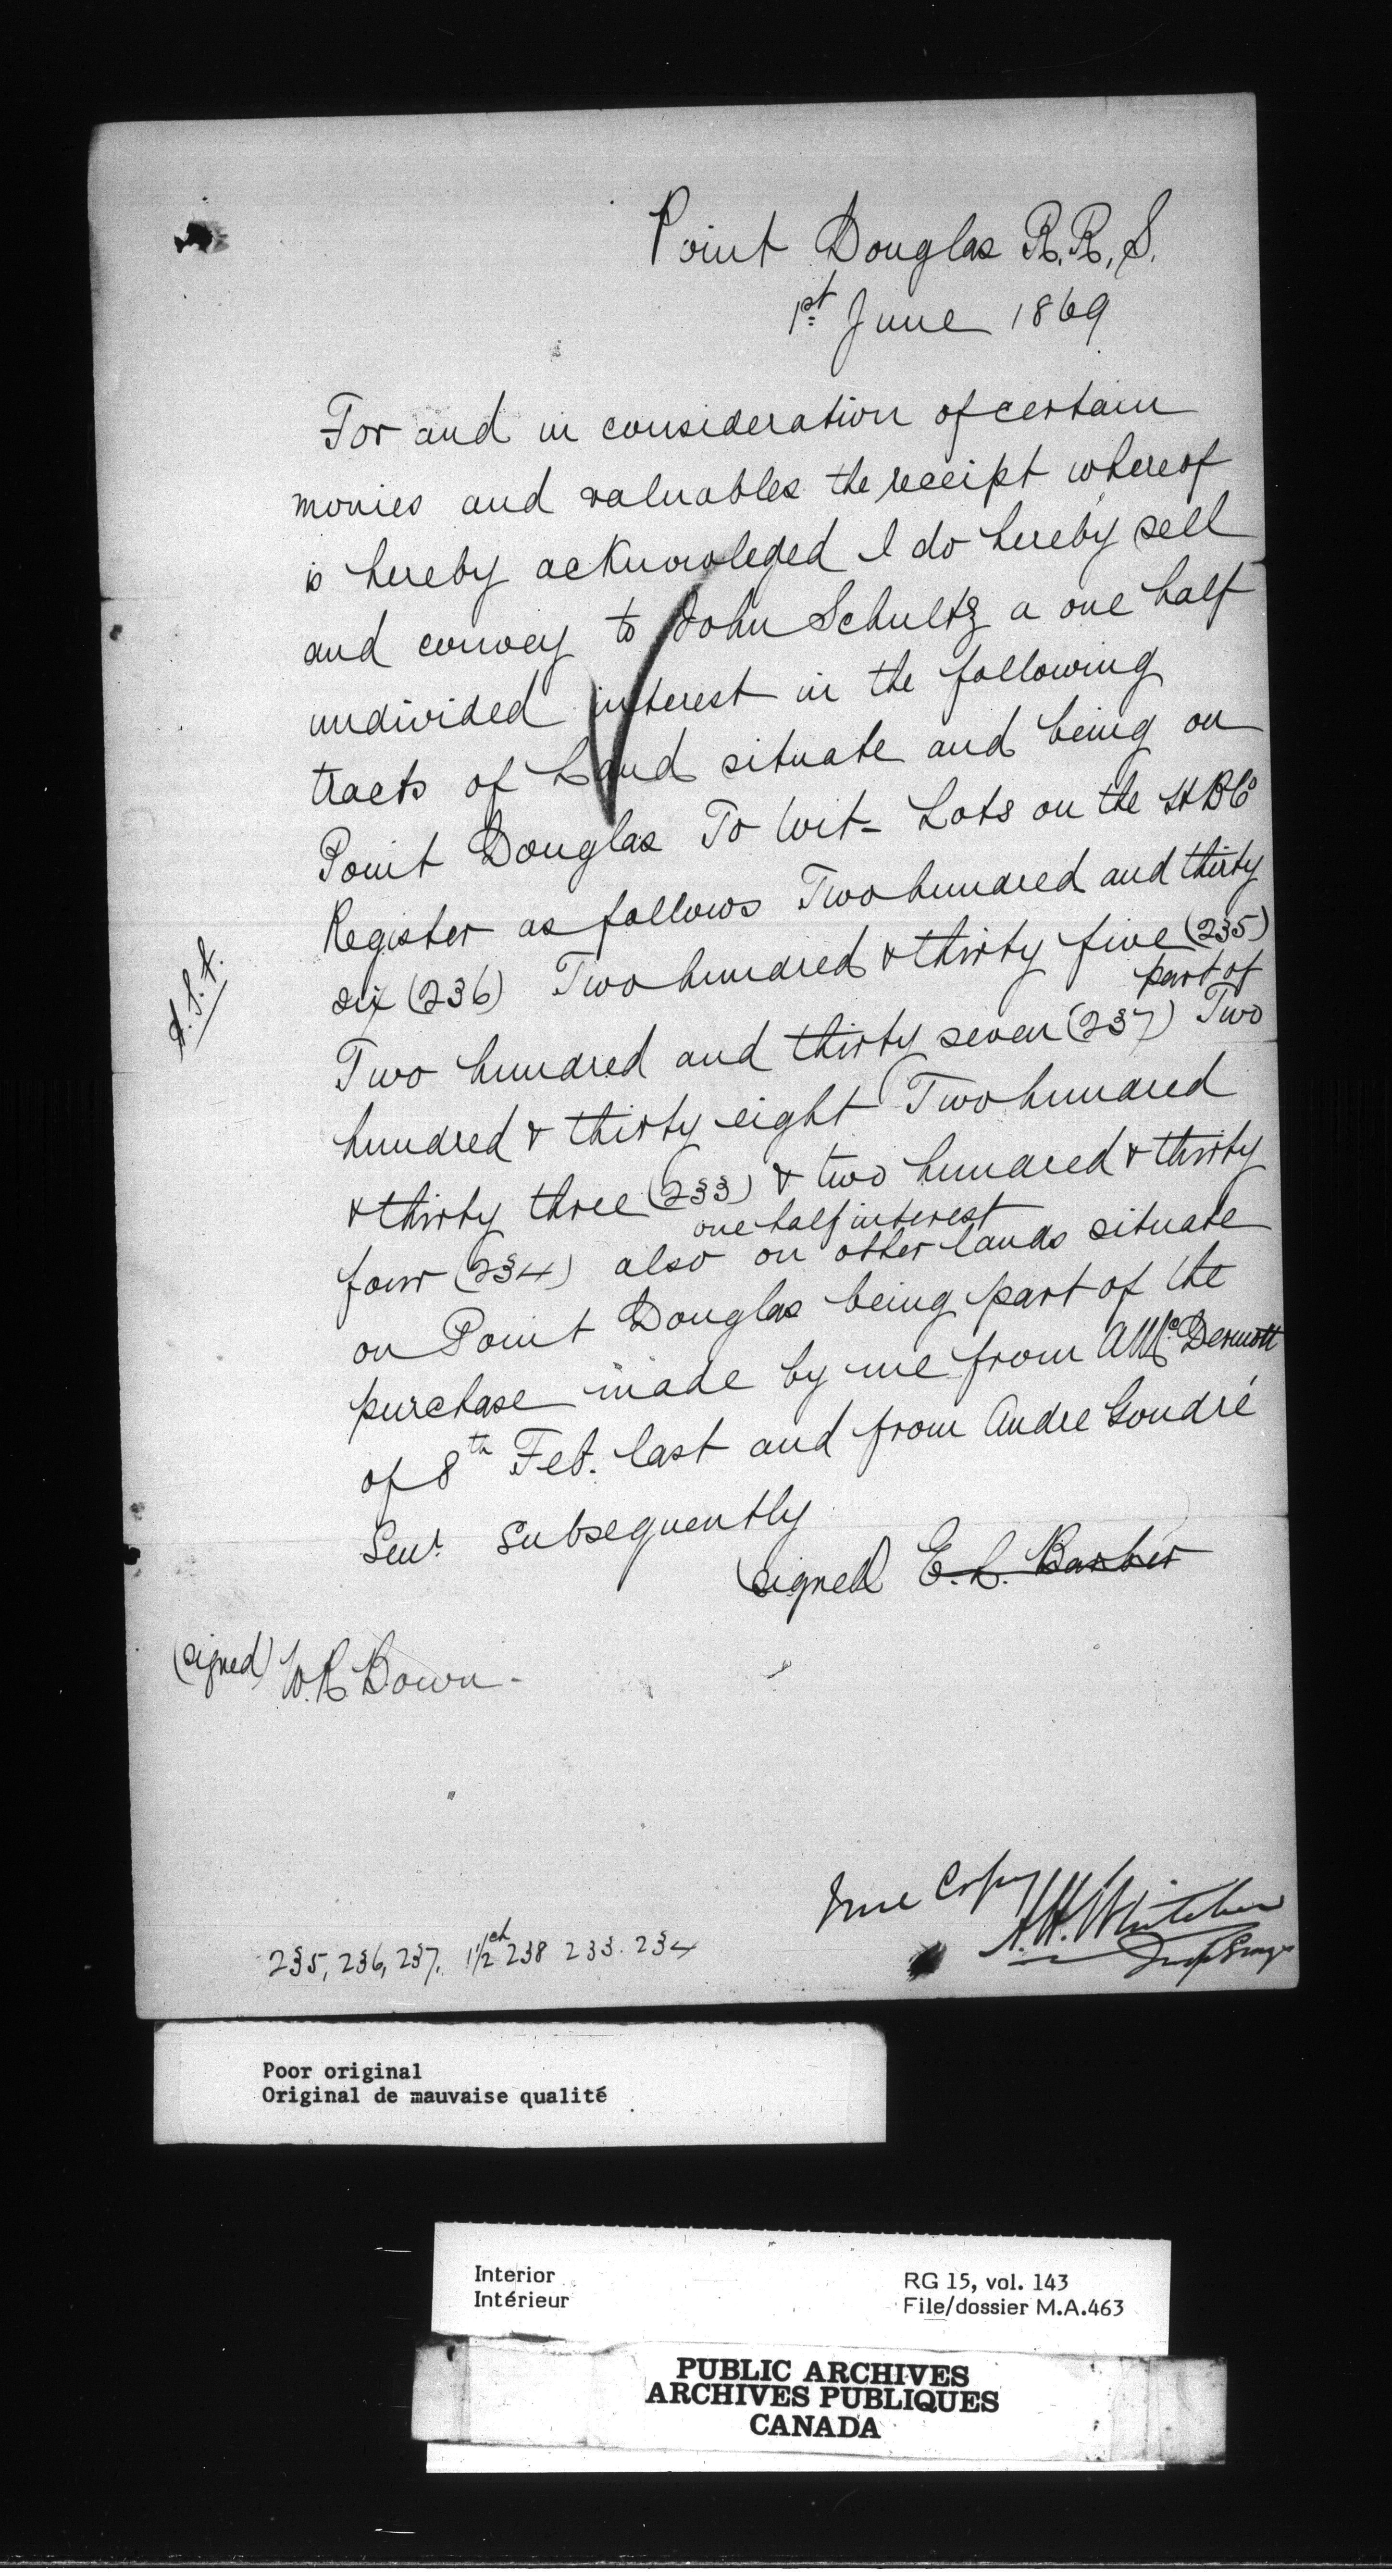 Point Douglas R.R.S.
1st June 1869
For and in consideration of certain
monies and valuables the receipt whereof
is hereby acknowleged I do hereby sell
and convey to John Schultz a one half
undivided interest in the following
tracts of Land situate and being on
Point Douglas To Wit - Lots on the H B Co
Register as follows Two hundred and thirty
six (236) Two hundred & thirty five (235)
part of
Two hundred and thirty seven (237) Two
hundred & thirty eight (Two hundred
& thirty three (233) & two hundred & thirty
one half interest
four (234) also on other lands situate
on Point Douglas being part of the
purchase made by me from A McDermott
of 8th Feb. last and from Andre Goudré
Senr. Subsequently
(signed E. L. Barber
(signed) W. R. Bown -
True Copy
A. H. Whitcher
Insp Survys
235, 236, 237, 1/2 238 233. 234
Poor original
Original de mauvaise qualité
Interior
Intérieur
RG 15, vol. 143
File/dossier M.A.463
PUBLIC ARCHIVES
ARCHIVES PUBLIQUES
CANADA